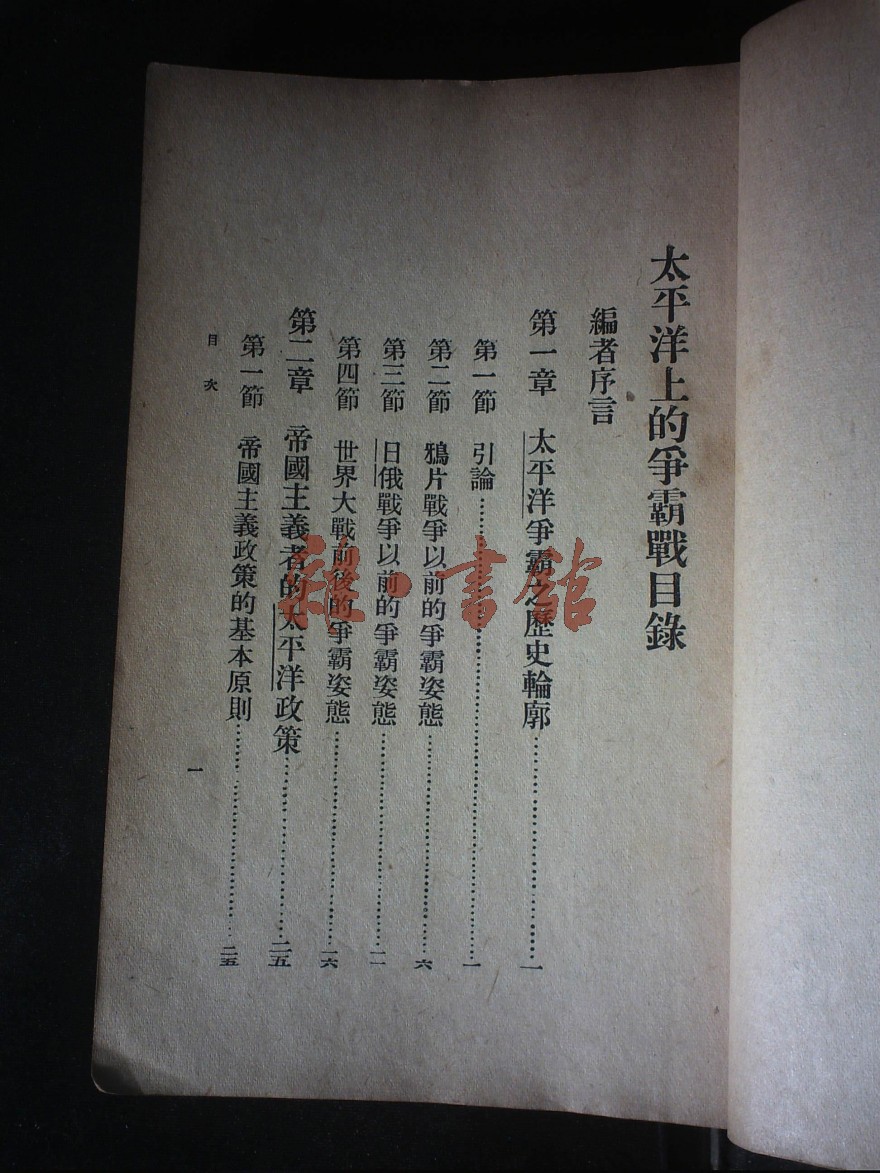 太平洋上的爭霸戰目錄
編者序言
第一章 太平洋爭霸之歷史輪廓……一
第一節 引論……一
第二節 鴉片戰爭以前的爭霸姿態……六
第三節 日俄戰爭以前的爭霸姿態……一一
第四節 世界大戰前後的爭霸姿態……一六
第二章 帝國主義者的太平洋政策……二五
第一節 帝國主義政策的基本原則……二五
目次
一
雜·書館